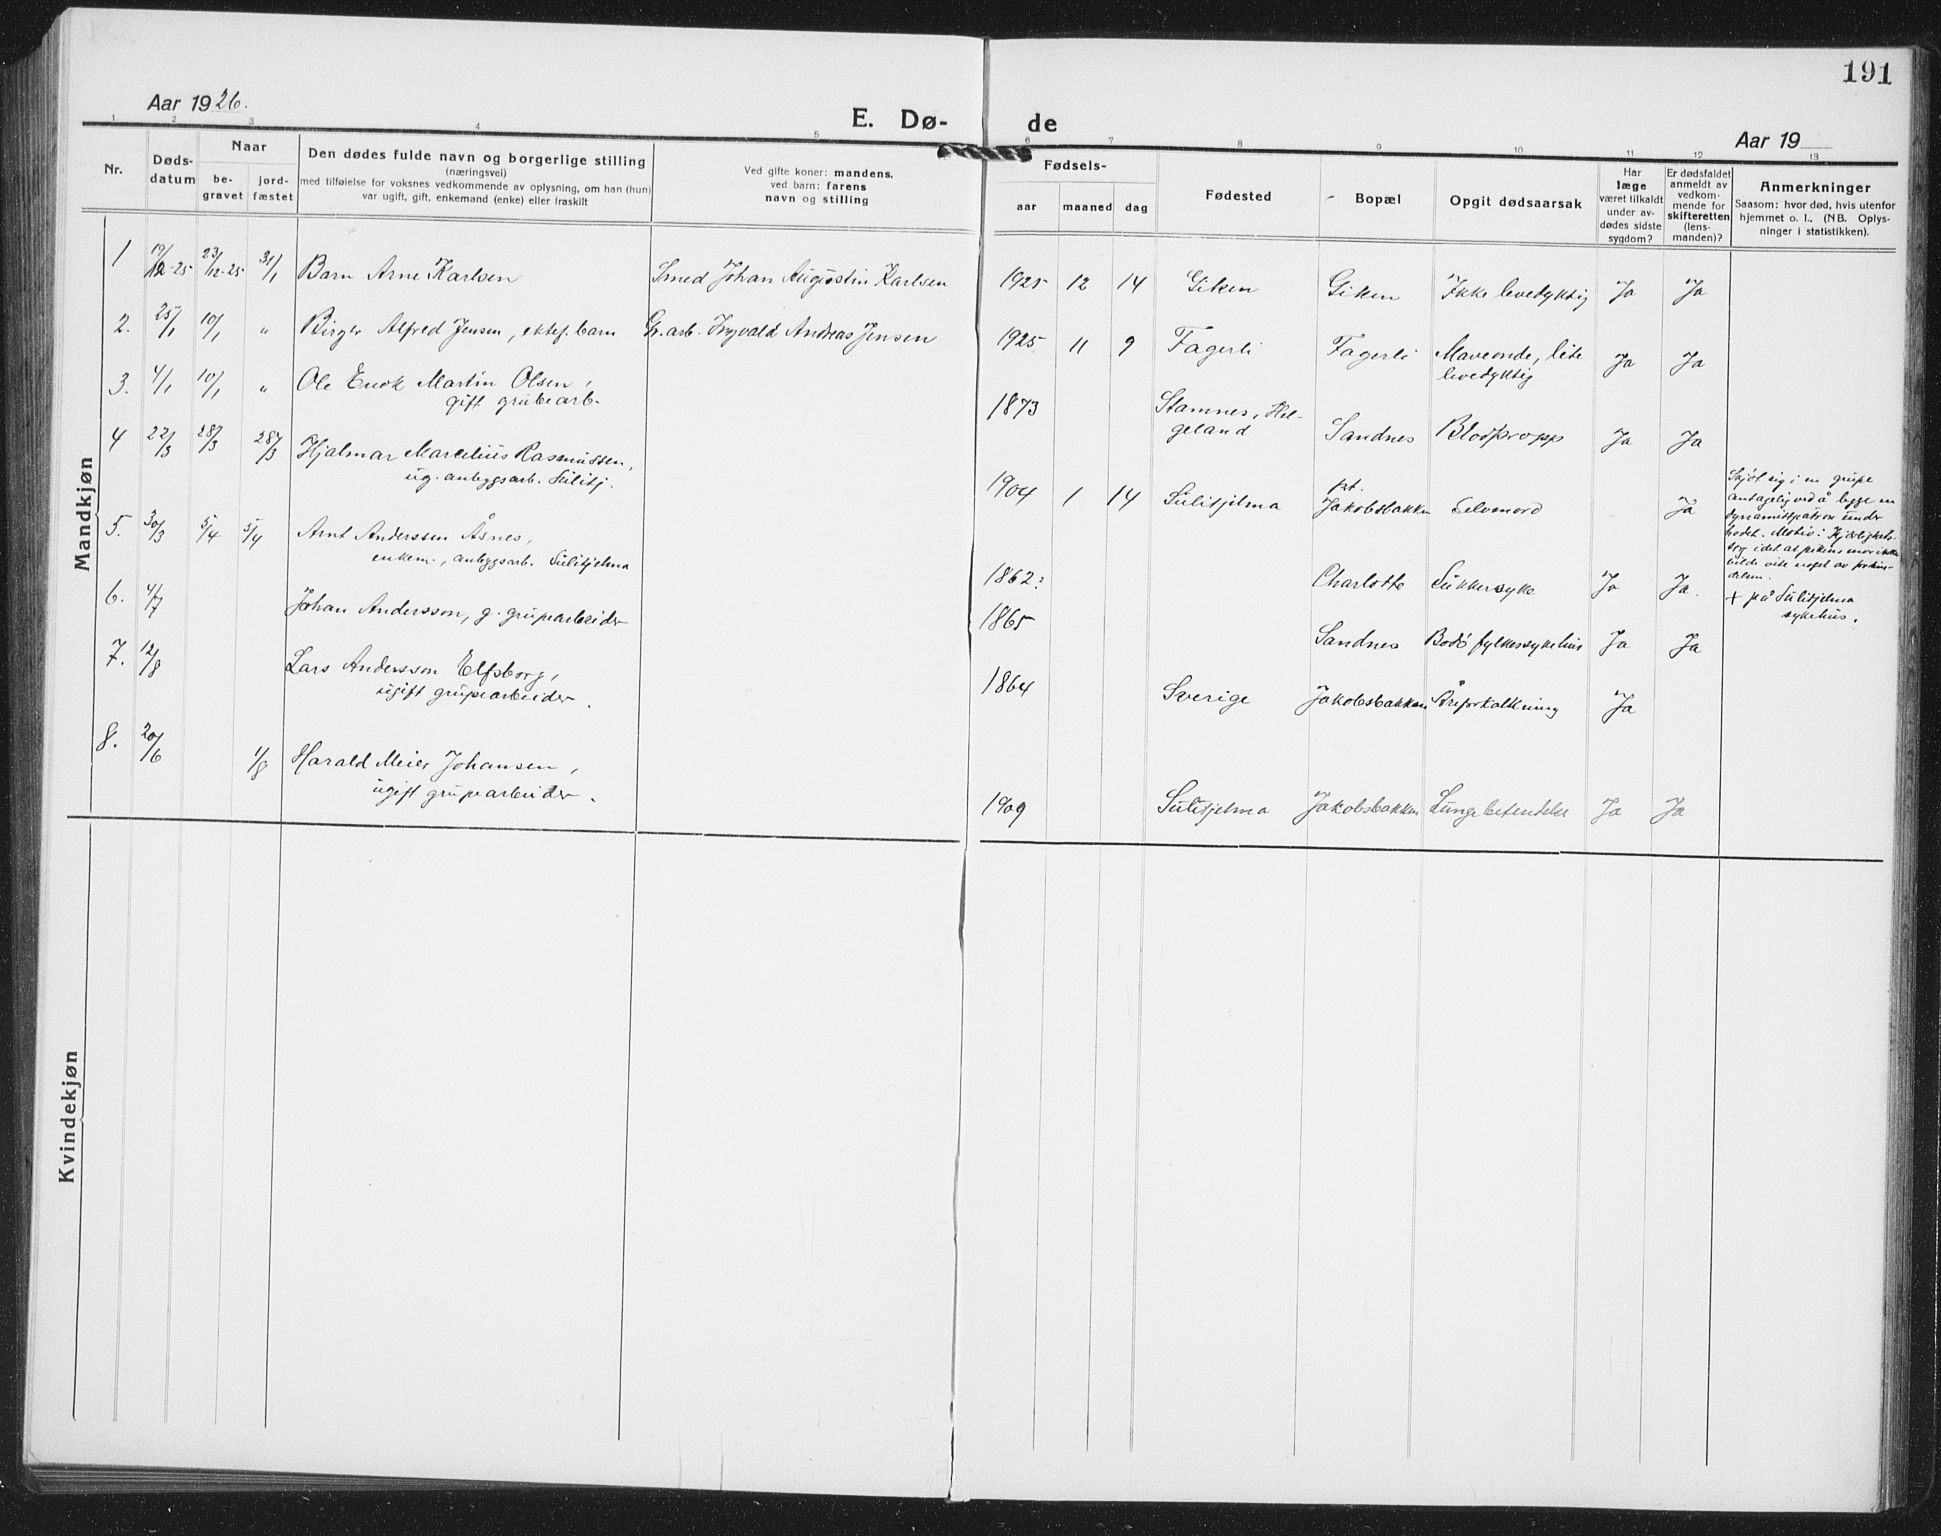 191
Aar 1926.
E. Dø-
de
Aar 19
1 2 3 4 5 6 7 8 9 10 11 12 13
Nr.
Døds-
datum
Naar
be-
gravet
jord-
fæstet
Den dødes fulde navn og borgerlige stilling
(næringsvei)
med tilføielse for voksnes vedkommende av oplysning, om han (hun)
var ugift, gift, enkemand (enke) eller fraskilt
Ved gifte koner: mandens,
ved barn: farens
navn og stilling
Fødsels-
aar maaned dag
Fødested
Bopæl
Opgit dødsaarsak
Har
læge
været tilkaldt
under av-
dødes sidste
sygdom?
Er dødsfaldet
anmeldt av
vedkom-
mende for
skifteretten
(lens-
manden)?
Anmerkninger
Saasom: hvor død, hvis utenfor
hjemmet o. l., (NB. Oplys-
ninger i statistikken).
Mandkjøn
1 19/12-25 23/12-25 31/1 Barn Arne Karlsen Smed Johan Augustin Karlsen 1925 12 14 Giken Giken Ikke levedyktig Ja Ja
2. 25/1 10/1 " Birger Alfred Jensen, ektef. barn Gr. arb. Ingvald Andreas Jensen 1925 11 9 Fagerli Fagerli Maveonde, lite
levedyktig Ja Ja
3. 4/1 10/1 " Ole Enok Martin Olsen,
gift grubearb. 1873 Stamnes, Hel-
geland Sandnes Blodpropp Ja Ja
4 22/3 28/3 28/3 Hjalmar Marcelius Rasmussen,
ug. anleggsarb. Sulitj. 1904 1 14 Sulitjelma pt.
Jakobsbakken Selvmord Ja
Skjøt sig i en grupe
antagelig ved å legge en
dynamitpatron under
hodet. Motiv: Kjærlighets-
sorg idet at pikens mor ikke
vilde vite noget av forbin-
delsen.
5. 30/3 5/4 5/4 Arnt Anderssen Åsnes,
enkem., anleggsarb. Sulitjelma 1862? Charlotte Sukkersyke Ja Ja.
+ på Sulitjelma
sykehus.
6. 4/7 Johan Andersson, g. grupearbeider 1865 Sandnes Bodø fylkessykehus Ja Ja
7. 12/8 Lars Andersson Elfsborg,
ugift grupearbeider. 1864 Sverige Jakobsbakken Åreforkalkning Ja
8. 20/6 1/8 Harald Meier Johansen,
ugift grupearbeider. 1909 Sulitjelma Jakobsbakken Lungebetendelse Ja Ja
Kvindekjøn